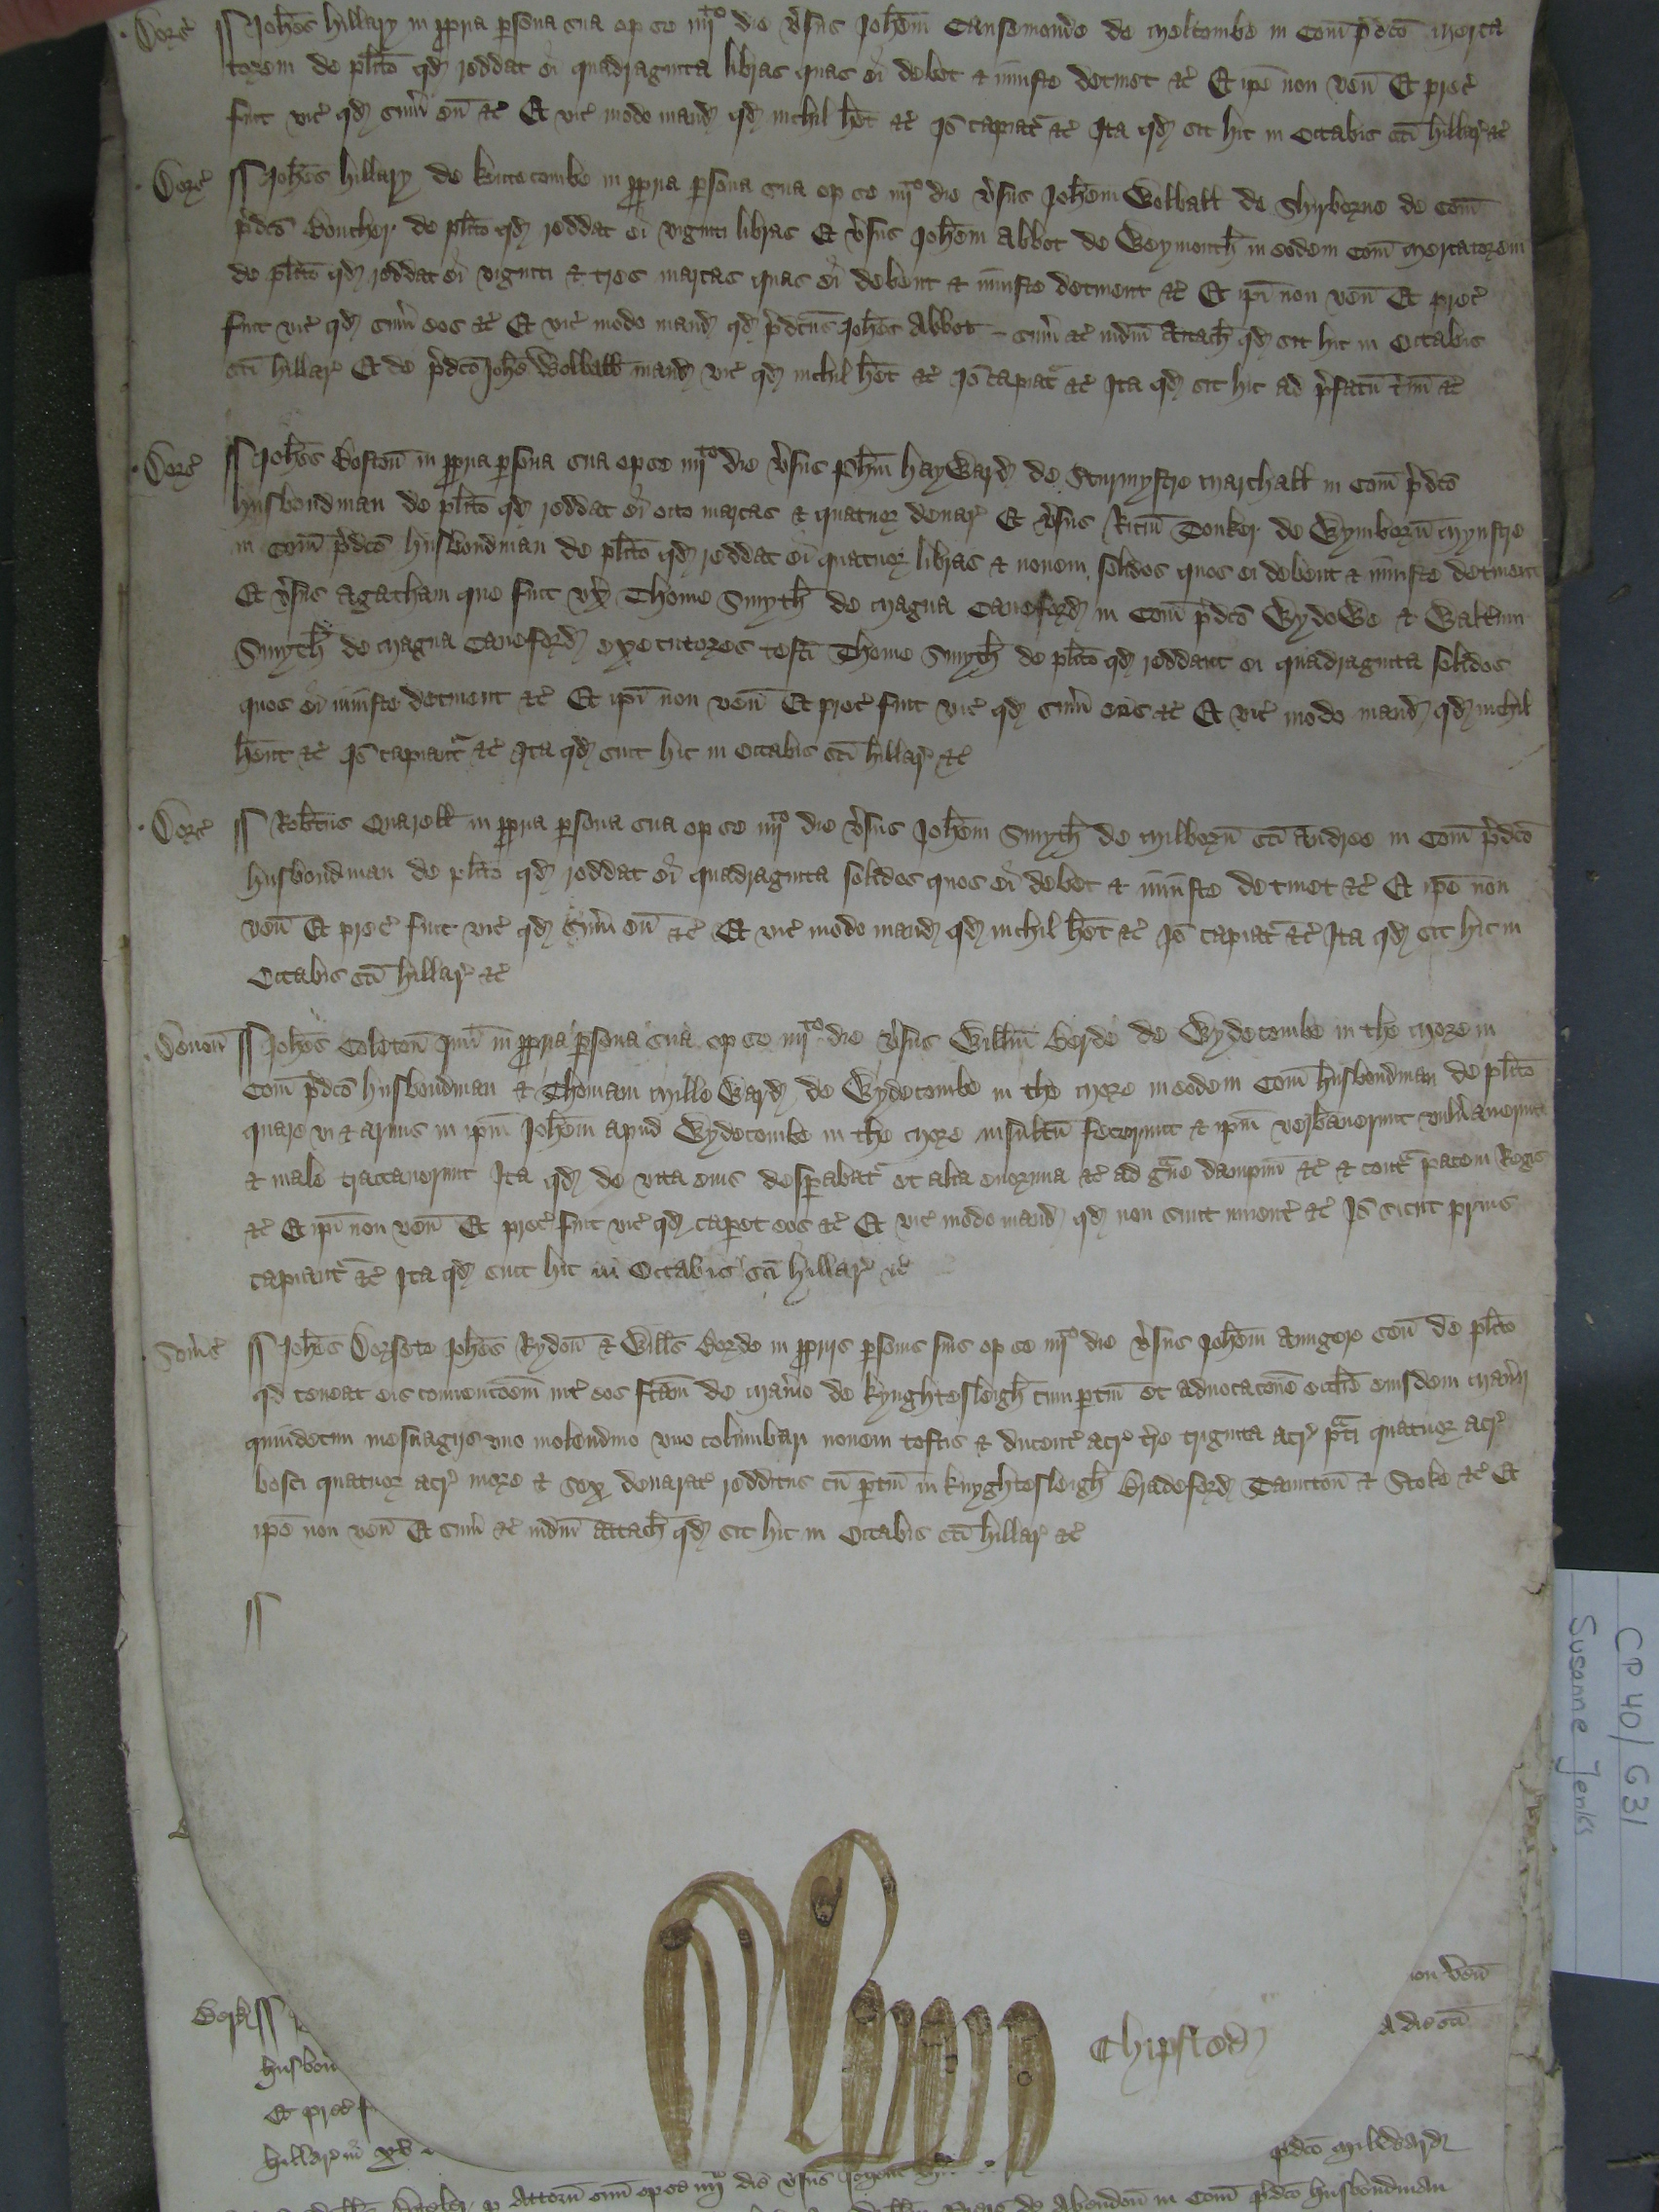 Dorſ ſſ Joh̄es Hillary in ꝓpria ꝑsona sua op se iiijto die v̓sus Joh̄em Cansemond̓e de Meltombe in Com̄ p̓dc̄o merca
torem de pl̄ito qd̛ reddat ei quadraginta libras quas ei debet & iniuste detinet &c̓ Et ip̄e non ven̄ Et prec̓
fuit vic̓ qd̛ sum̄ eu̅ &c̓ Et vic̓ modo mand̛ qd̛ nichil h̄et &c̓ Jō capiat̓ &c̓ Ita qd̛ sit hic in Octabis sc̄i Hillar̓ &c̓
Dorſ ſſ Joh̄es Hillary de in ꝓpria ꝑsona sua op se iiijto die v̓sus Joh̄em Wolball de Shirborne de Com̄
p̓dc̄o Boucher de pl̄ito qd̛ reddat ei viginti libras Et v̓sus Joh̄em Abbot de Weymouth̄ in eodem Com̄ Mercatorem
de pl̄ito qd̛ reddat ei viginti & tres marcas quas ei debent & iniuste detinent &c̓ Et ip̄i non ven̄ Et prec̓
fuit vic̓ qd̛ sum̄ eos &c̓ Et vic̓ modo mand̛ qd̛ p̓dc̄us Joh̄es Abbot – sum̄ &c̓ iudm̄ Attach̄ qd̛ sit hic in Octabis
sc̄i Hillar̓ Et de p̓dc̄o Joh̄e Wolball mand̛ vic̓ qd̛ nichil h̄et &c̓ Jō capiat̓ &c̓ Ita qd̛ sit hic ad p̓fatu̅ t̓m̄ &c̓
Dorſ ſſ Joh̄es Boston̄ in ꝓpria ꝑsona sua op se iiijto die v̓sus Ph̄m Hayward̛ de Sturmystre Marchall in Com̄ p̓dc̄o
husbondman de pl̄ito qd̛ reddat ei octo marcas & quatuor denar̓ Et v̓sus Ric̄m Tonker de Wymborn̄ Mynstre
in Com̄ p̓dc̄o husbondman de pl̄ito qd̛ reddat ei quatuor libras & novem solidos quos ei debent & iniuste detinent
Et v̓sus Agatham que fuit vx̓ Thome Smyth̄ de Magna Caneford̛ in Com̄ p̓dc̄o Wydowe & Walt̓um
Smyth̄ de Magna Caneford̛ executores testi Thome Smyth̄ de pl̄ito qd̛ reddant ei quadraginta solidos
quos ei iniuste detinent &c̓ Et ip̄i non ven̄ Et prec̓ fuit vic̓ qd̛ sum̄ eos &c̓ Et vic̓ modo mand̛ qd̛ nichil
h̄ent &c̓ Jō capiant̓ &c̓ Ita qd̛ sint hic in Octabis sc̄i Hillar̓ &c̓
Dorſ ſſ Rob̄tus Quarell in ꝓpria ꝑsona sua op se iiijto die v̓sus Joh̄em Smyth̄ de Milborn̄ sc̄i Andree in Com̄ p̓dc̄o
husbondman de pl̄ito qd̛ reddat ei quadraginta solidos quos ei debet & iniuste detinet &c̓ Et ip̄e non
ven̄ Et prec̓ fuit vic̓ qd̛ sum̄ eu̅ &c̓ Et vic̓ modo mand̛ qd̛ nichil h̄et &c̓ Jō capiat̓ &c̓ Ita qd̛ sit hic in
Octabis sc̄i Hillar̓ &c̓
Devon̄ ſſ Joh̄es Coleton̄ Jun̄ in ꝓpria ꝑsona sua op se iiijto die v̓sus Will̄m Berde de Wydecombe in the More in
Com̄ p̓dc̄o husbondman & Thomam Milleward̛ de Wydecombe in the More in eodem Com̄ husbondman de pl̄ito
quare vi & armis in ip̄m Joh̄em apud Wydecombe in the More insultu̅ fecerunt & ip̄m verbaverunt vuln̓averunt
& male tractaverunt Ita qd̛ de vita eius desꝑabat̓ et alia enormia &c̓ ad g̓ve dampnu̅ &c̓ & cont̓ pacem Regis
&c̓ Et ip̄i non ven̄ Et prec̓ fuit vic̓ qd̛ caperet eos &c̓ Et vic̓ modo mand̛ qd̛ non sunt invent̓ &c̓ Jō sicut prius
capiant̓ &c̓ Ita qd̛ sint hic in Octabis sc̄i Hillar̓ &c̓
Som̓s̓ ſſ Joh̄es Dorsete Joh̄es Rydon̄ & Will̄s Borde in ꝓpriis ꝑsonis suis op se iiijto die v̓sus Joh̄em Aungere sen̄ de pl̄ito
qd̛ teneat eis convenc̄oem int̓ eos fc̄am de Man̓io de Kynghtesleigh̄ cum ꝑtin̄ et advocac̄one eccl̄ie eiusdem Man̓ij
quindecim mesuagijs vno molendino vno columbari novem toftis & ducent̓ acr̓ t̓re triginta acr̓ p̓ti quatuor acr̓
bosci quatuor acr̓ more & sex denarat̓ redditus cu̅ ꝑtin̄ in Knyghtesleigh̄ Bradeford̛ Taunton̄ & Stoke &c̓ Et
ip̄e non ven̄ Et sum̄ &c̓ iudm̄ Attach̄ qd̛ sit hic in Octabis sc̄i Hillar̓ &c̓
ſſ
CP 40/631
Susanne Jenks
non ven̄
Berk̓ ſſ
a die sc̄i
husbon
Chipsted̛
Et prec̓ f
Hillar̓ in xv
p̓dc̄o Milleward̛
p Attorn̄ suu̅ op se iiijto die v̓sus de Abendon̄ in Com̄ p̓dc̄o husbondman